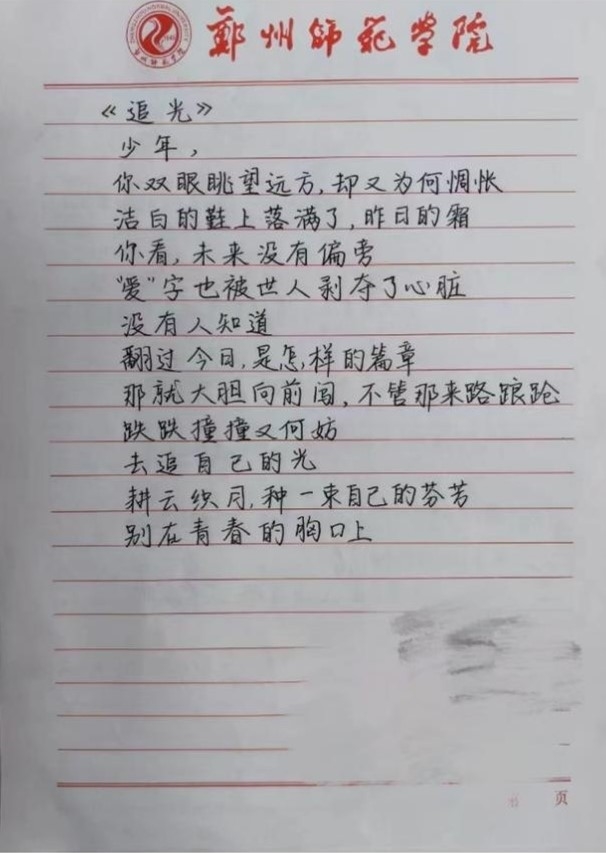 郑州师范学院
《追光》
少年，
你双眼眺望远方，却又为何惆怅
洁白的鞋上落满了，昨日的霜
你看，未来没有偏旁
“爱”字也被世人剥夺了心脏
没有人知道
翻过今日，是怎样的篇章
那就大胆向前闯，不管那来路踉跄
跌跌撞撞又何妨
去追自己的光
耕云织月，种一束自己的芬芳
别在青春的胸口上
页